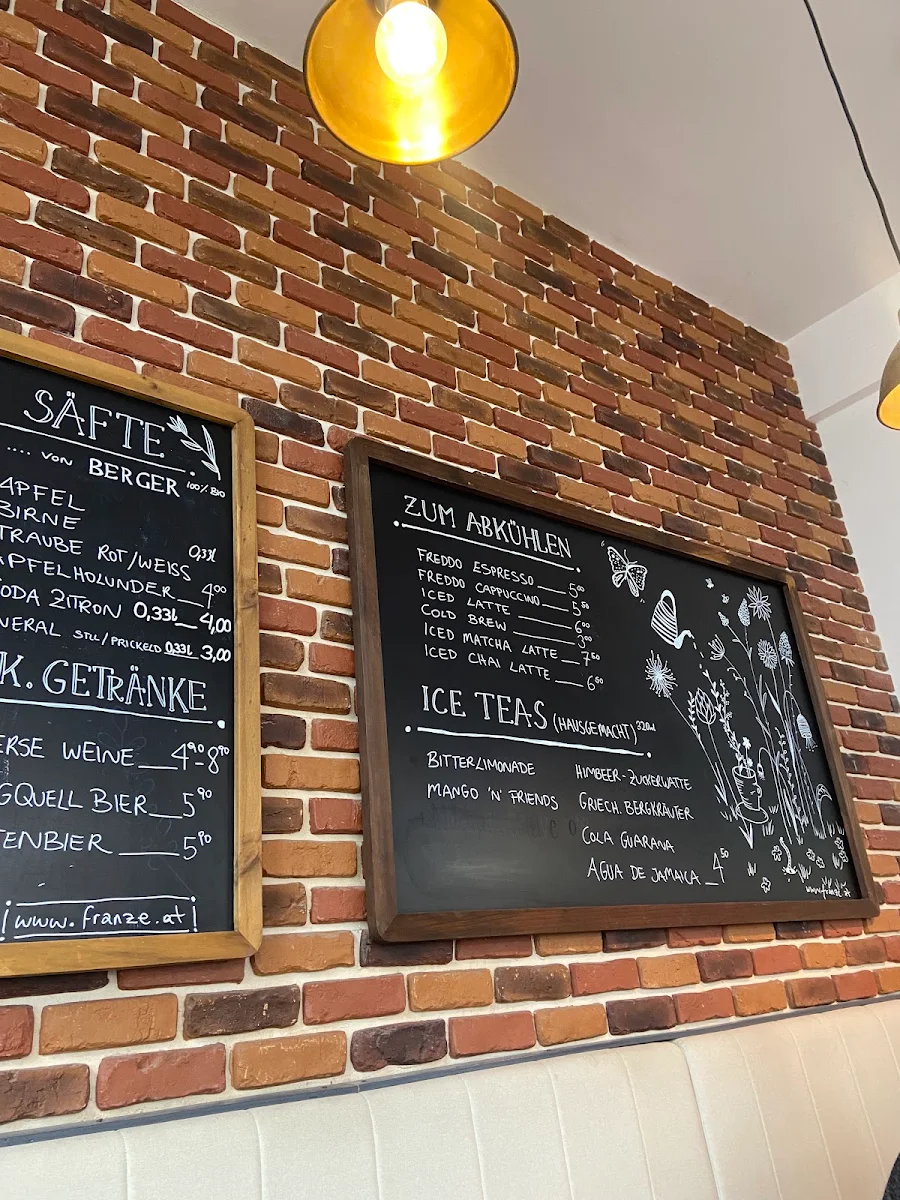 SÄFTE
.... VON BERGER 100% BIO
APFEL
BIRNE
TRAUBE ROT/WEISS 0,33l
APFELHOLUNDER 4,00
ODA ZITRON 0,33l 4,00
NERAL STILL/PRICKELD 0,33l 3,00
K. GETRÄNKE
ERSE WEINE 4,90-8,90
GQUELL BIER 5,90
TENBIER 5,90
www.franze.at
ZUM ABKÜHLEN
FREDDO ESPRESSO 5,00
FREDDO CAPPUCCINO 5,50
ICED LATTE 6,00
COLD BREW 3,00
ICED MATCHA LATTE 7,50
ICED CHAI LATTE 6,60
ICE TEAS (HAUSGEMACHT) 320ml
BITTERLIMONADE
MANGO 'N' FRIENDS
HIMBEER-ZUCKERWATTE
GRIECH. BERGKRÄUTER
COLA GUARANA
AGUA DE JAMAICA 4,50
www.franze.at